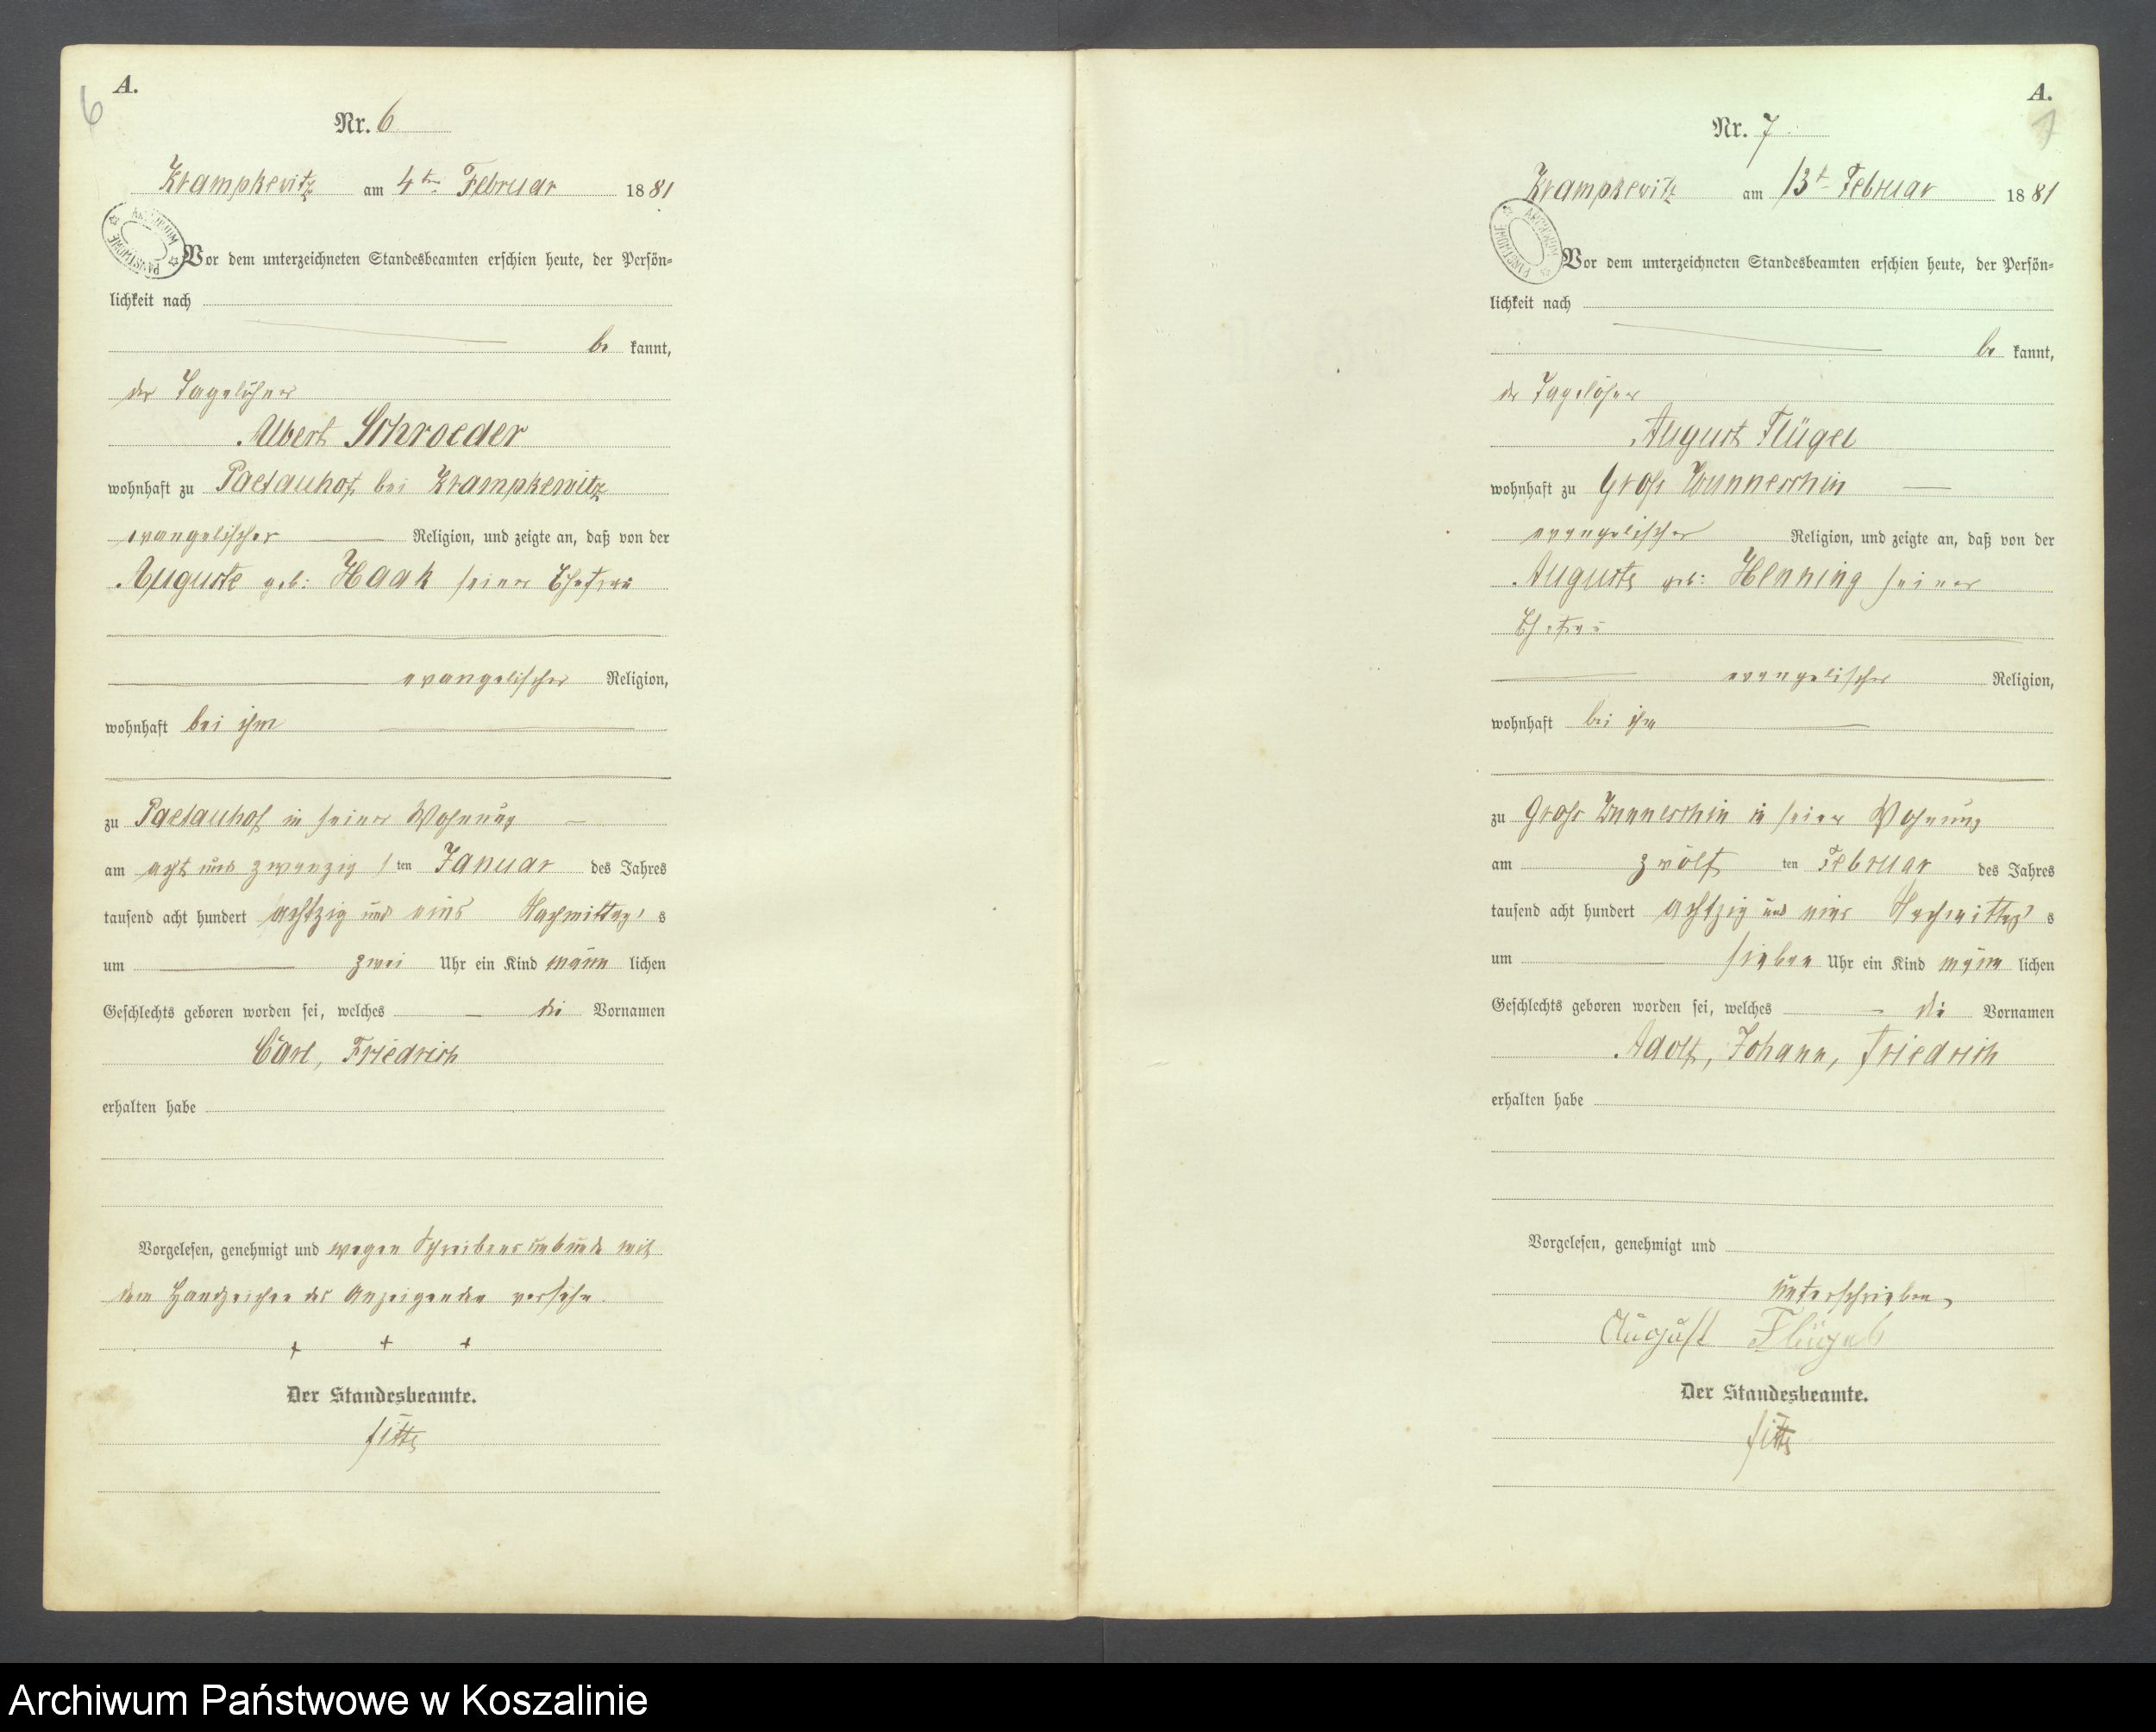 A.
6
Nr. 6
Krampkewitz am 4ten Februar 1881
ARCHIWUM PAŃSTWOWE
Vor dem unterzeichneten Standesbeamten erschien heute, der Persön-
lichkeit nach
be kannt,
der Tagelöhner
Albert Schroeder
wohnhaft zu Paetauhof bei Krampkewitz
evangelischer Religion, und zeigte an, daß von der
Auguste geb: Haak seiner Ehefrau
evangelischer Religion,
wohnhaft bei ihm
zu Paetauhof in seiner Wohnung
am acht und zwanzig s ten Januar des Jahres
tausend acht hundert achtzig und eins Nachmittag s
um zwei Uhr ein Kind männ lichen
Geschlechts geboren worden sei, welches die Vornamen
Carl, Friedrich
erhalten habe
Vorgelesen, genehmigt und wegen Schreibensunkunde mit
dem Handzeichen des Anzeigenden versehn.
+ + +
Der Standesbeamte.
A.
7
Nr. 7.
Krampkewitz am 13t Februar 1881
ARCHIWUM PAŃSTWOWE
Vor dem unterzeichneten Standesbeamten erschien heute, der Persön-
lichkeit nach
be kannt,
der Tagelöhner
August Flügel
wohnhaft zu Groß Wunneschin
evangelischer Religion, und zeigte an, daß von der
Auguste geb: Henning seiner
Ehefrau
evangelischer Religion,
wohnhaft bei ihm
zu Groß Wunneschin in seiner Wohnung
am zwölf ten Februar des Jahres
tausend acht hundert achtzig und eins Nachmittag s
um sieben Uhr ein Kind männ lichen
Geschlechts geboren worden sei, welches die Vornamen
Adolf, Johann, Friedrich
erhalten habe
Vorgelesen, genehmigt und
unterschrieben,
August Flügel
Der Standesbeamte.
Archiwum Państwowe w Koszalinie